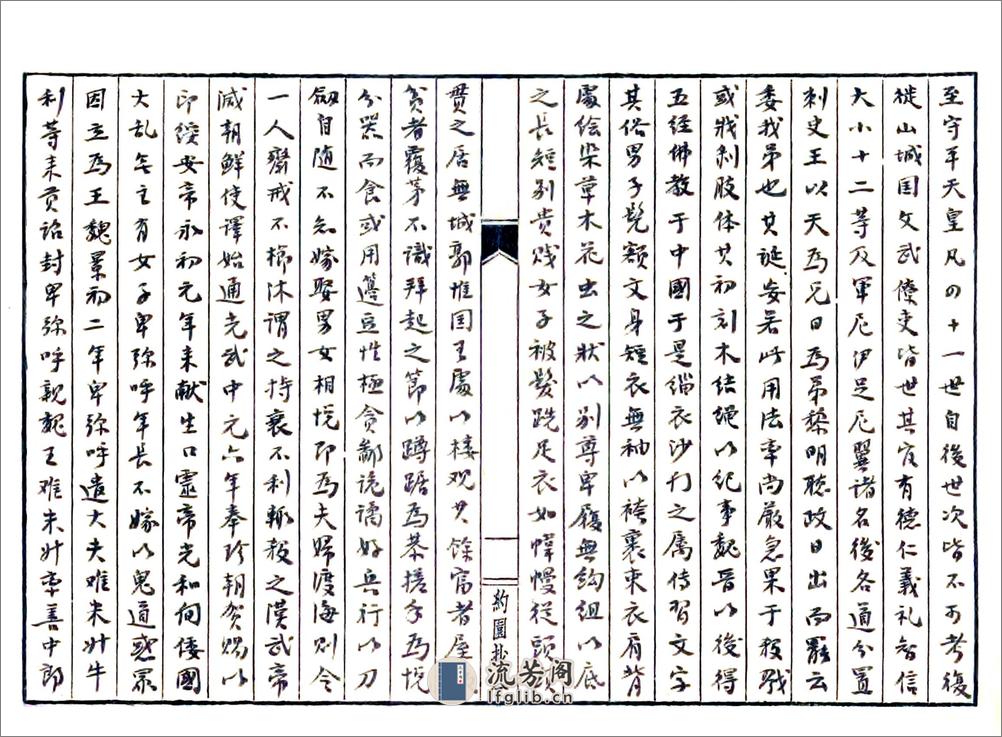 至守平天皇凡四十一世自後世次皆不可考復
徙山城国文武僚吏皆世其官有德仁義礼智信
大小十二等及軍尼伊尼翼諸名後各道分置
刺史王以天為兄日為弟黎明聽政日出而罷云
委我弟也其誕妄若此用法率尚嚴急果于殺戮
或戕刳肢体其初刻木結繩以紀事魏晋以後得
五経佛教于中國于是緇衣沙门之属传習文字
其俗男子髡额文身短衣無袖以袴裹束衣肩背
處绘染草木花虫之狀以别尊卑履無絇组以底
之長短别贵贱女子被髪跣足衣如幃幔從頭
贯之居無城郭惟国王處以楼观其餘富者屋
贫者覆茅不識拜起之節以蹲踞為恭搓手為悦
分器而食或用籩豆性極贪鄙诡譎好兵行以刀
劒自随不忌嫁娶男女相悦即為夫婦渡海则令
一人齋戒不櫛沐谓之持衰不利輒殺之漢武帝
滅朝鮮使譯始通光武中元六年奉珍朝贺赐以
印绶安帝永初元年来献生口靈帝光和间倭國
大乱無主有女子卑弥呼年長不嫁以鬼道惑眾
因立為王魏景初二年卑弥呼遣大夫难米升牛
利等来贡诏封卑弥呼親魏王难米升率善中郎
約園抄
流芳阁
lfglib.cn